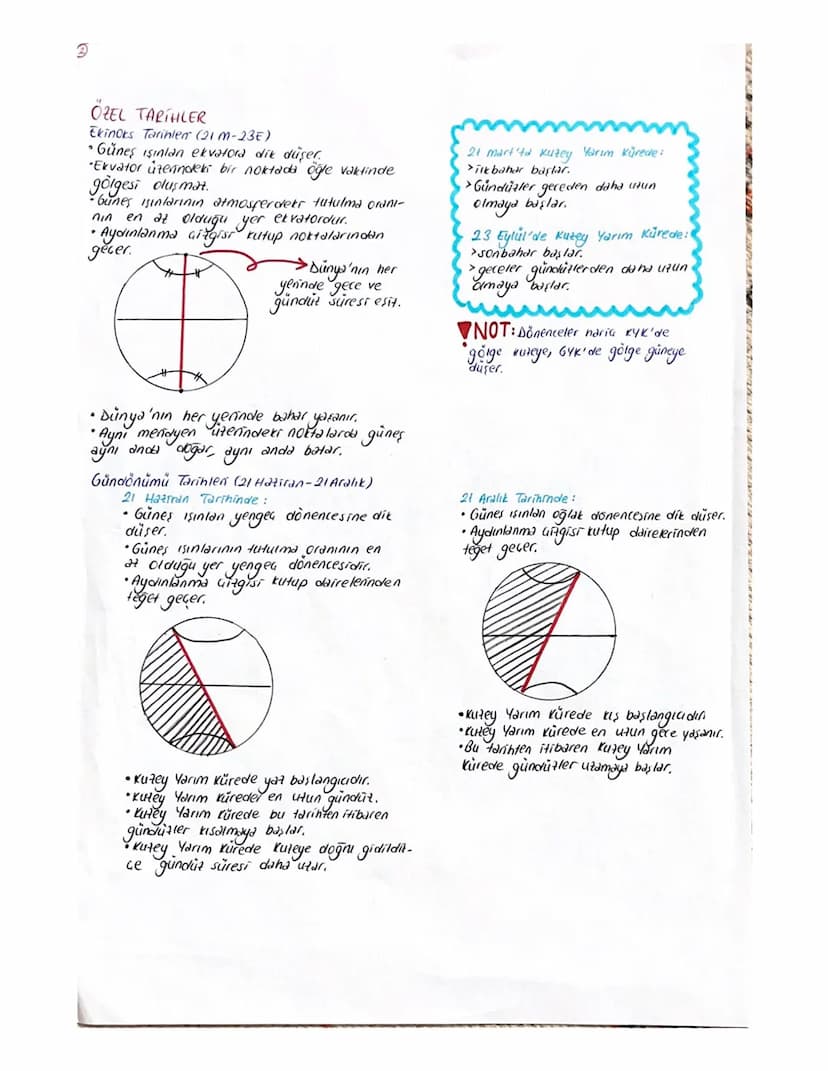 2
ÖZEL TARİHLER
Ekinoks Tarihleri (21 M-23E)
• Güneş ışınları ekvatora dik düşer.
• Ekvator üzerindeki bir noktada öğle vaktinde
gölgesi oluşmaz.
• Güneş ışınlarının atmosferdeki tutulma oranı-
nın en az olduğu yer ekvatordur.
• Aydınlanma çizgisi kutup noktalarından
geçer.
Dünya'nın her
yerinde gece ve
gündüz süresi eşit.
• Dünya'nın her yerinde bahar yaşanır.
• Aynı meridyen üzerindeki noktalarda güneş
aynı anda doğar, aynı anda batar.
Gündönümü Tarihleri (21 Haziran-21 Aralık)
21 Haziran Tarihinde:
• Güneş ışınları yengeç dönencesine dik
düşer.
• Güneş ışınlarının tutulma oranının en
az olduğu yer yengeç dönencesidir.
• Aydınlanma çizgisi kutup dairelerinden
teğet geçer.
• Kuzey Yarım Kürede yaz başlangıcıdır.
• Kuzey Yarım Küreder en uzun gündüz.
• Kuzey Yarım Kürede bu tarihten itibaren
gündüzler kısalmaya başlar.
• Kuzey Yarım Kürede kuzeye doğru gidildik-
çe gündüz süresi daha uzar.
21 mart'ta Kuzey Yarım Kürede:
> ilkbahar başlar.
> Gündüzler geceden daha uzun
olmaya başlar.
23 Eylül'de Kuzey Yarım Kürede:
> sonbahar başlar.
> geceler gündüzlerden daha uzun
olmaya başlar.
NOT: Dönenceler hariç KYK'de
gölge kuzeye, GYK'de gölge güneye
düşer.
21 Aralık Tarihinde:
• Güneş ışınları oğlak dönencesine dik düşer.
• Aydınlanma çizgisi kutup dairelerinden
teğet geçer.
• Kuzey Yarım Kürede kış başlangıcıdır.
• Kuzey Yarım Kürede en uzun gece yaşanır.
• Bu tarihten itibaren Kuzey Yarım
Kürede gündüzler uzamaya başlar.